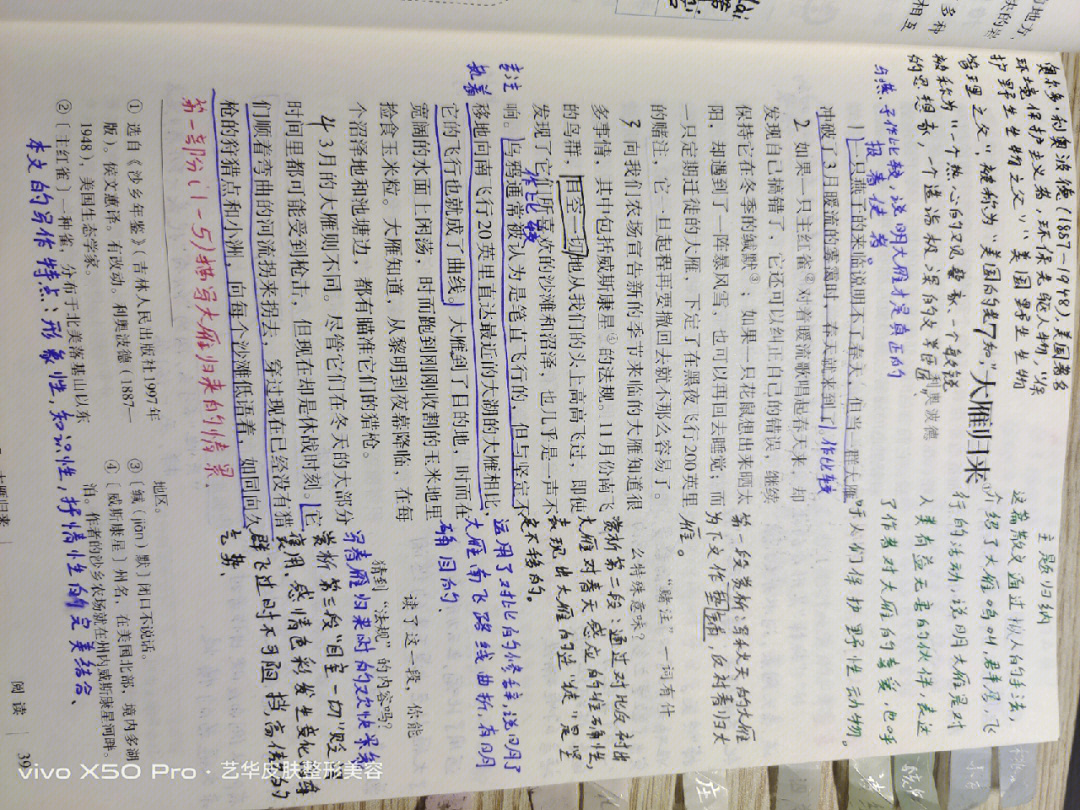 奥尔多·利奥波德(1887-1948),美国著名
环境保护主义者,环保先驱人物"保
护野生生物之父""美国野生生物
管理之父",被称为"美国的
被称为"一个热心的观察家,一个
的思想家,一个造诣极深的文学巨匠
与燕子作比较,说明大雁才是真正的
报春使者。
7 大雁归来
利奥波德
1 一只燕子的来临说明不了春天,但当一群大雁
冲破了3月暖流的雾霭时,春天就来到了。作比较
2 如果一只主红雀②对着暖流歌唱起春天来,却
发现自己搞错了,它还可以纠正自己的错误,继续
保持它在冬季的缄默③;如果一只花鼠想出来晒太
阳,却遇到了一阵暴风雪,也可以再回去睡觉;而
一只定期迁徙的大雁,下定了在黑夜飞行200英里
的赌注,它一旦起程再要撤回去就不那么容易了。
3 向我们农场宣告新的季节来临的大雁知道很
多事情,其中包括威斯康星④的法规。11月份南飞
的鸟群,目空一切地从我们的头上高高飞过,即使
发现了它们所喜欢的沙滩和沼泽,也几乎是一声不
响。乌鸦通常被认为是笔直飞行的,但与坚定不
移地向南飞行20英里直达最近的大湖的大雁相比,
它的飞行也就成了曲线。大雁到了目的地,时而在
宽阔的水面上闲荡,时而跑到刚刚收割的玉米地里
捡食玉米粒。大雁知道,从黎明到夜幕降临,在每
个沼泽地和池塘边,都有瞄准它们的猎枪。
4 3月的大雁则不同。尽管它们在冬天的大部分
时间里都可能受到枪击,但现在却是休战时刻。它
们顺着弯曲的河流拐来拐去,穿过现在已经没有猎
枪的狩猎点和小洲,向每个沙滩低语着,如同向久
作比较
专注
执着
第一部份(1-5)描写大雁归来的情景.
主题归纳
这篇散文通过拟人的手法,
介绍了大雁鸣叫,群居,飞
行的活动,说明大雁是对
人类有益无害的伙伴,表达
了作者对大雁的喜爱,也呼
吁人们保护野性动物。
"赌注"一词有什
么特殊意味?
第一段赏析:写冬天的大雁
为下文作垫铺,反衬春归大
雁。
赏析第二段:通过对比反衬出
大雁对春天感应的准确性,
表现出大雁的迁徙是坚
定不移的。
运用了对比的修辞,说明了
大雁南飞路线曲折,有明
确目的、
读了这一段,你能
猜到"法规"的内容吗?
写春雁归来时的欢快
赏析第三段"目空一切"贬
使用,感情色彩发生变化,
群飞过时不可阻挡,高傲的
气势、
① 选自《沙乡年鉴》(吉林人民出版社1997年
版)。侯文蕙译。有改动。利奥波德(1887—
1948),美国生态学家。
②〔主红雀〕一种雀,分布于北美落基山以东
地区。
③〔缄(jiān)默〕闭口不说话。
④〔威斯康星〕州名,在美国北部,境内多湖
泊。作者的沙乡农场就在州内威斯康星河畔。
本文的写作特点:形象性,知识性,抒情性的完美结合、
阅读 39
vivo X50 Pro · 艺华皮肤整形美容